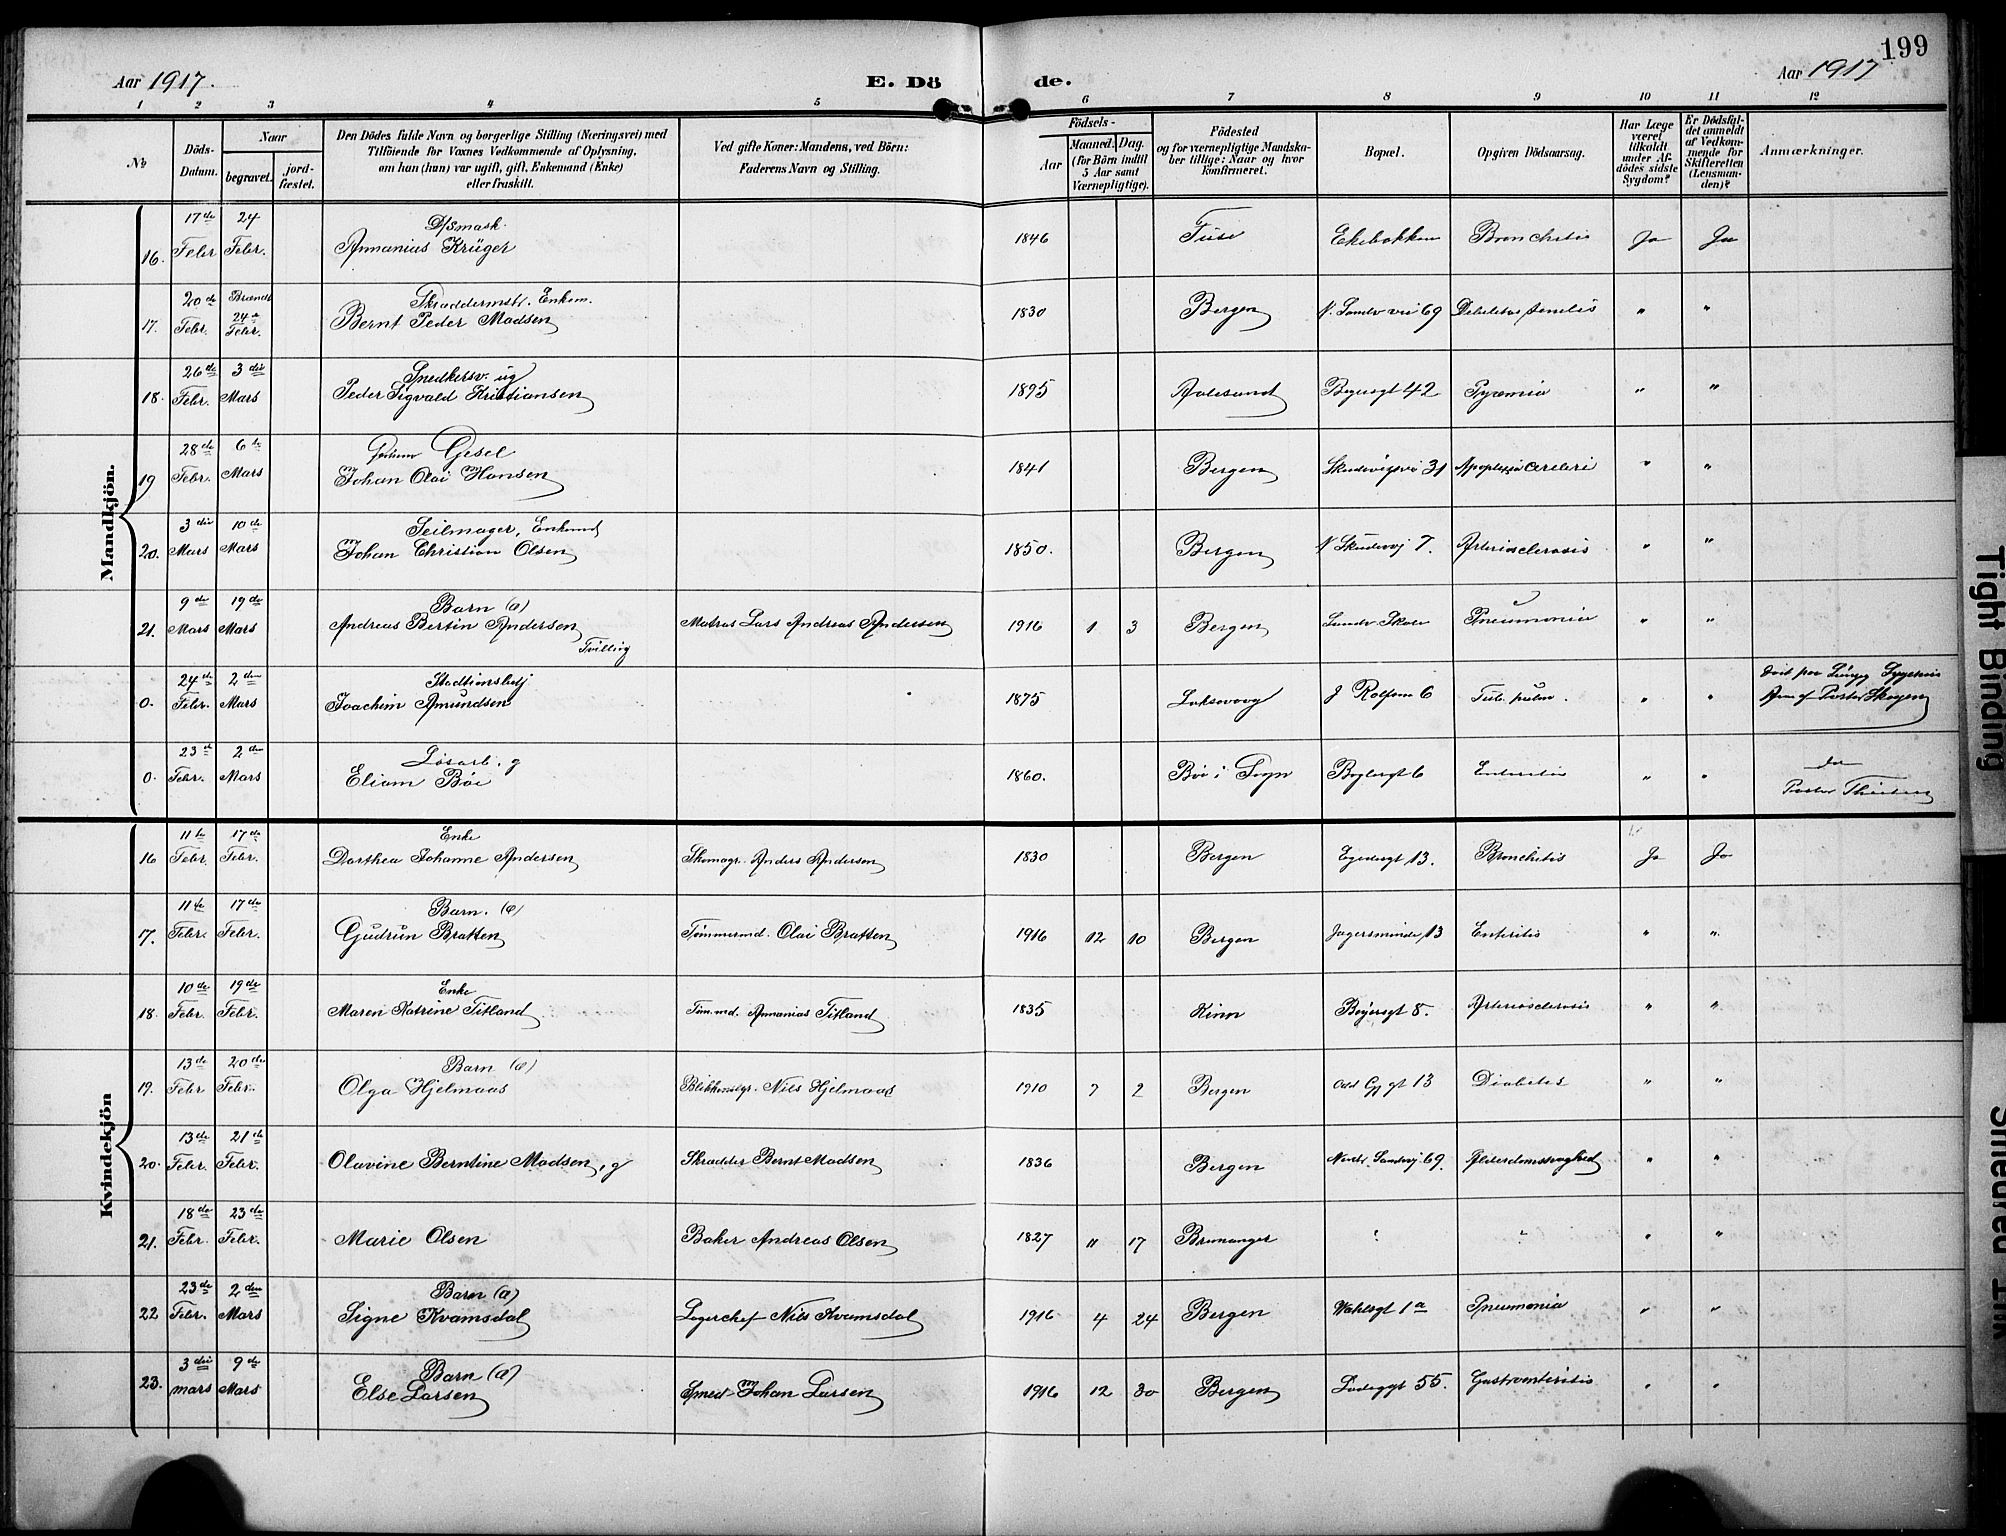 199
Aar 1917.
E. Dö
de.
Aar 1917
1 2 3 4 5 6 7 8 9 10 11 12
No
Döds-
Datum.
Naar
begravet.
jord-
fæstet.
Den Dödes fulde Navn og borgerlige Stilling (Næringsvei) med
Tilföiende for Voxnes Vedkommende af Oplysning,
om han (hun) var ugift, gift, Enkemand (Enke)
eller fraskilt.
Ved gifte Koner: Mandens, ved Börn:
Faderens Navn og Stilling.
Födsels-
Aar
Maaned. Dag.
(for Börn indtil
5 Aar samt
Værnepligtige).
Födested
og for værnepligtige Mandska-
ber tillige: Naar og hvor
konfirmeret.
Bopæl.
Opgiven Dödsaarsag.
Har Læge
været
tilkaldt
under Af-
dödes sidste
Sygdom?
Er Dödsfal-
det anmeldt
af Vedkom-
mende for
Skifteretten
(Lensman-
den)?
Anmærkninger.
Mandkjön.
17de 24
16. Febr Febr. Ananias Krüger 1846 Ekebakken Bronchitis Ja Ja
20de Brændt Skræddermstr. Enkem.
24de
17. Febr. Febr. Bernt Peder Madsen 1830 Bergen N. Sandv vei 69 " "
26de 3die Snedkersv. ug
18. Febr. Mars Peder Sigvald Kristiansen 1895 Aalesund 42 Pyæmia " "
28de 6te Gesel
19 Febr. Mars Johan Olai Hansen 1841 Bergen Skudevigsvei 31 Apoplexia cerebri " "
3die 10de Seilmager, Enkemd
20. Mars Mars Johan Christian Olsen 1850. Bergen N Skudevvj 7. Arteriosclerosis " "
9de 19de Barn (a)
21. Mars Mars Andreas Bertin Andersen Matros Lars Andreas Andersen 1916 1 3 Bergen Sandv Skole Pneumonia " "
Tvilling
24de 2den
0. Febr. Mars Joachim Amundsen 1875 Laksevaag 6 Tub. pulm. " "
Pastor Skagen
23de 2den Løsarb. g
0. Febr. Mars Eliam Bøe 1860. Bøe i Sogn 6 Enteritis " "
Pastor
Kvindekjön
11te 17de Enke
16 Febr. Febr. Dorthea Johanne Andersen Skomagr. Anders Andersen 1830 Bergen Egedesgt 13. Bronchitis Ja Ja
11te 17de Barn. (e)
17. Febr. Febr. Gudrun Bratten Tømmermd. Olai Bratten 1916 12 10 Bergen Jægersminde 13 Enteritis " "
10de 19de Enke
18. Febr. Febr. Maren Katrine Titland Tøm.md. Annanias Titland 1835 Kinn Bøyersgt 8. Arteriosclerosis " "
13de 20de Barn (e)
19. Febr Febr. Olga Hjelmaas Nils Hjelmaas 1910 7 2 Bergen gt 13 Diabetes " "
13de 21de
20. Febr. Febr. Olavine Berntine Madsen, g Skrædder Bernt Madsen 1836 Bergen Nordr. Sandvj 69. Alderdomssvaghed " "
18de 23de
21. Febr. Febr. Marie Olsen Baker Andreas Olsen 1827 11 17 Bremanger " " " "
23de 2den Barn (a)
22 Febr. Mars Signe Kvamsdal Lagerchef Nils Kvamsdal 1916 4 24 Bergen Wahlsgt 1a Pneumonia " "
3die 9de Barn (a)
23. mars Mars Else Larsen Smed Johan Larsen 1916 12 30 Bergen 55. Gastroenteritis " "
Tight Binding